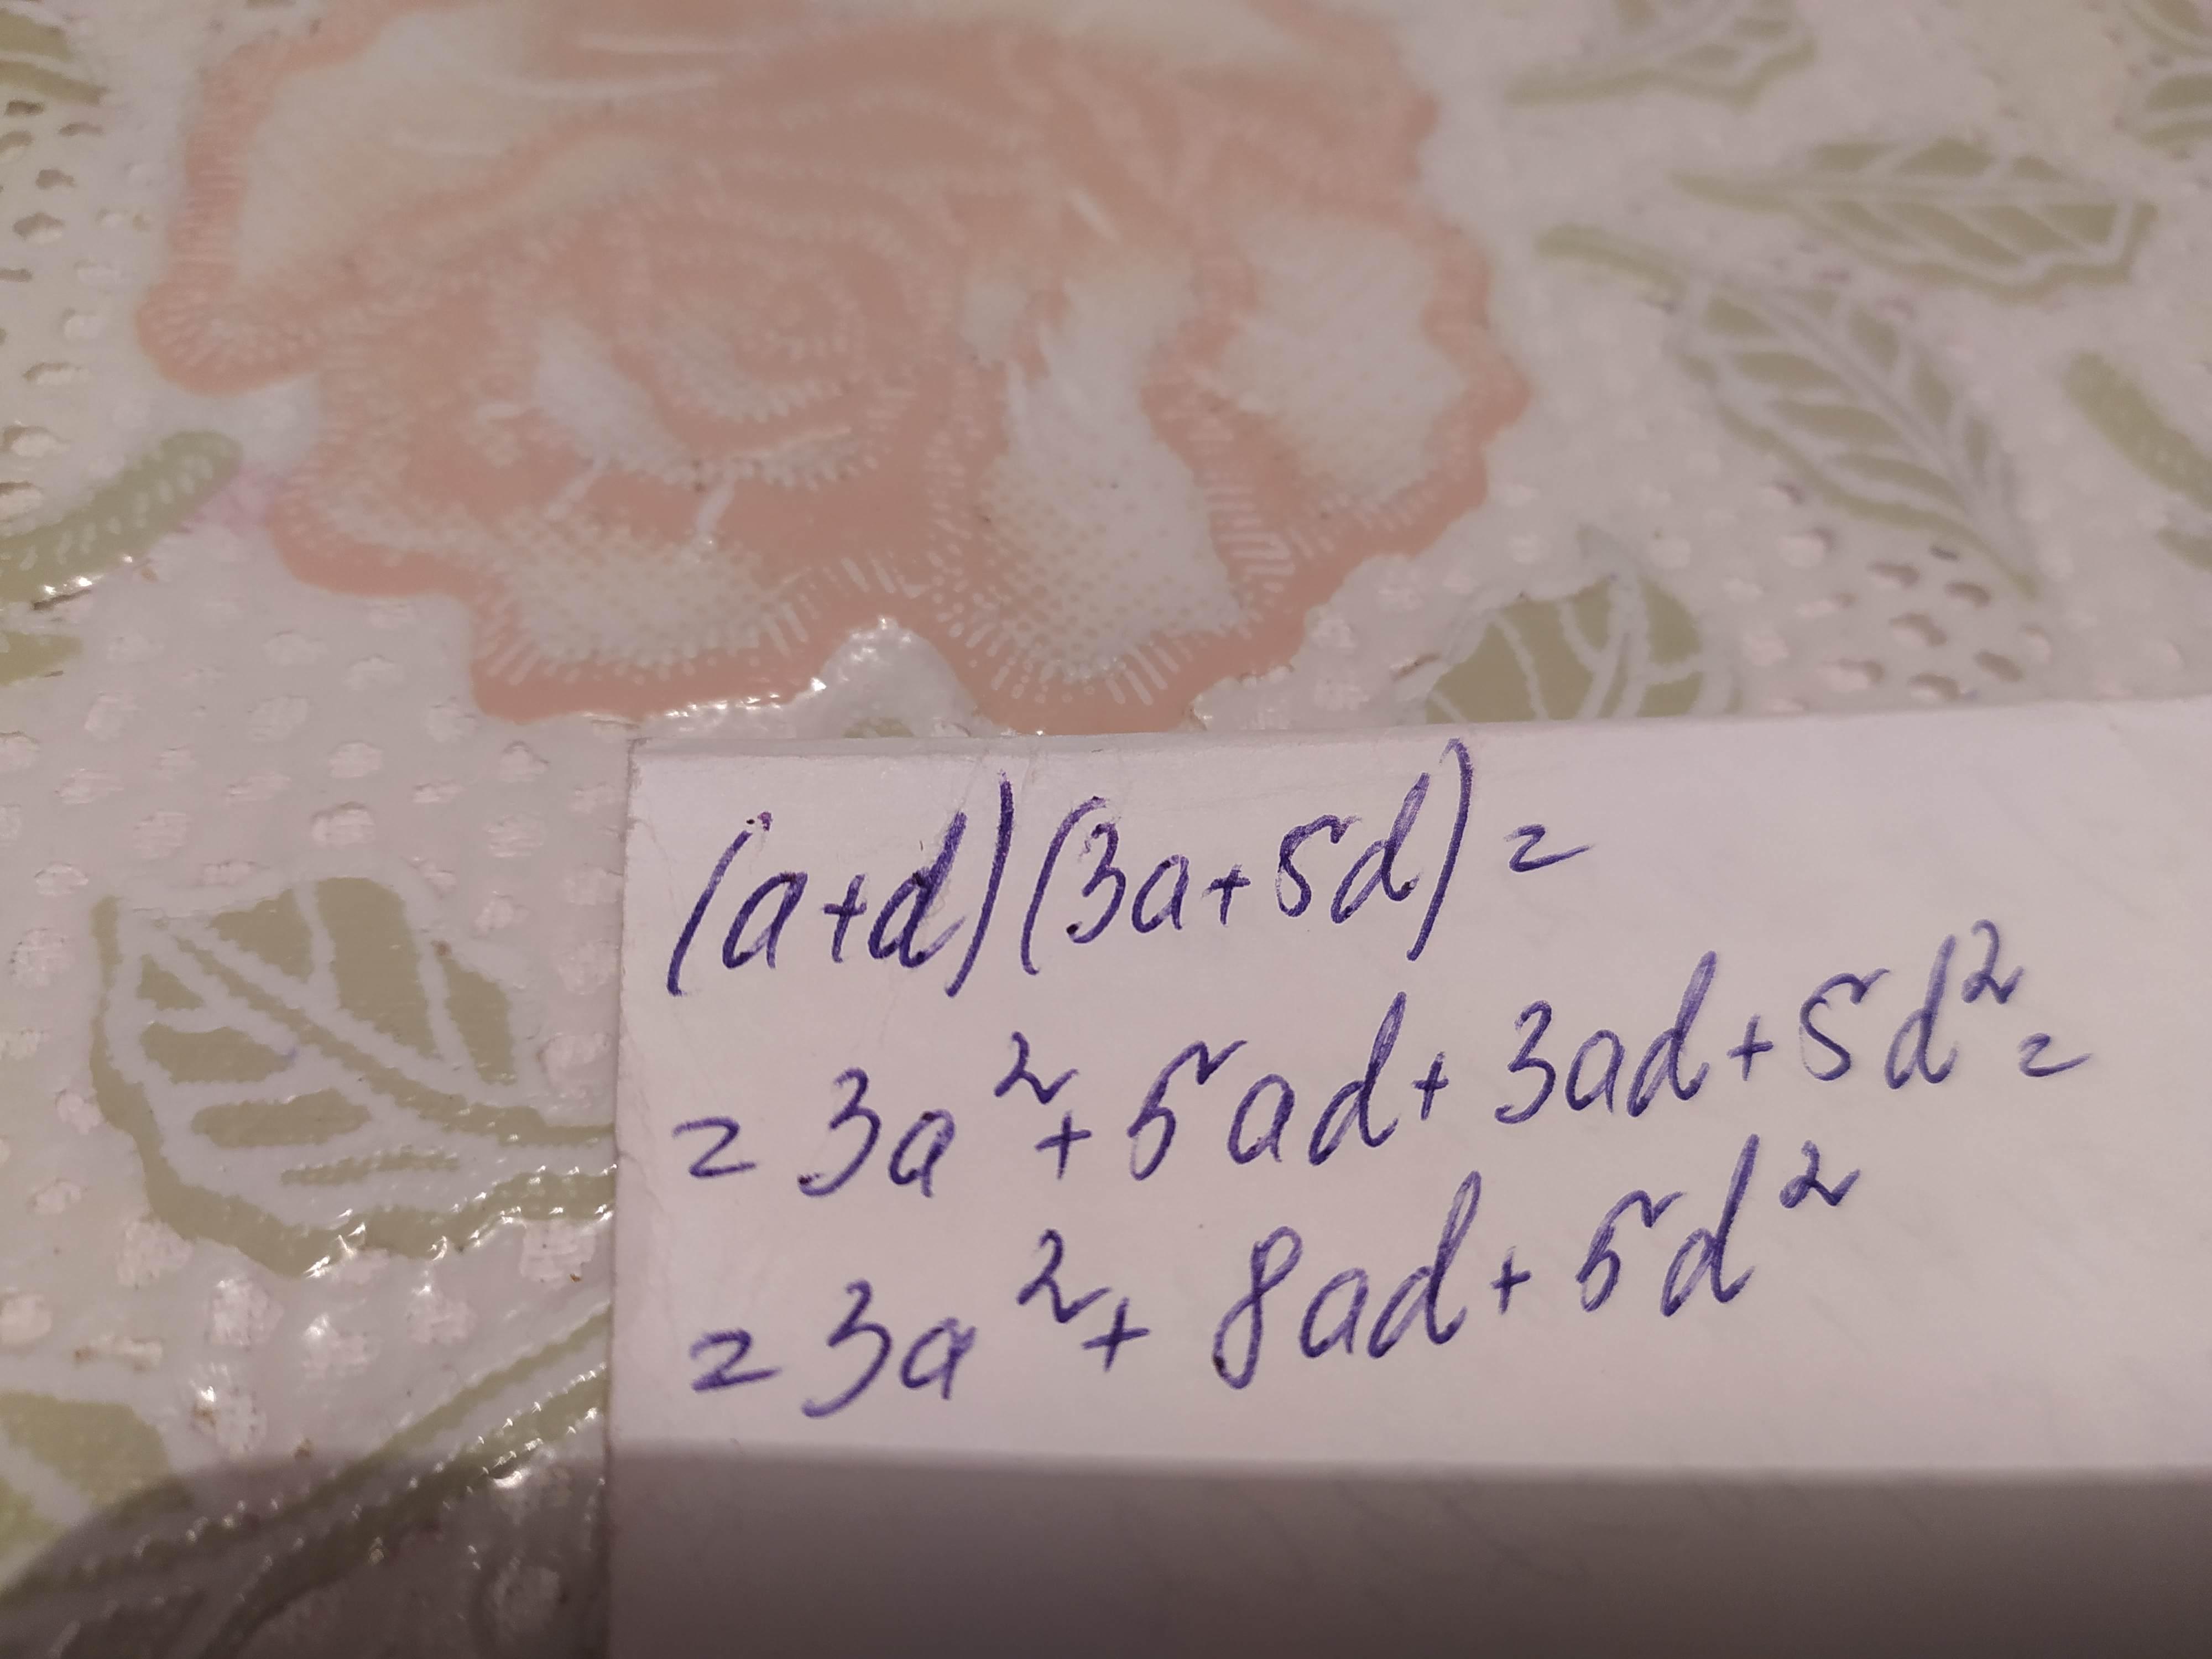 (a+d)(3a+5d)=
=3a²+5ad+3ad+5d²=
=3a²+8ad+5d²